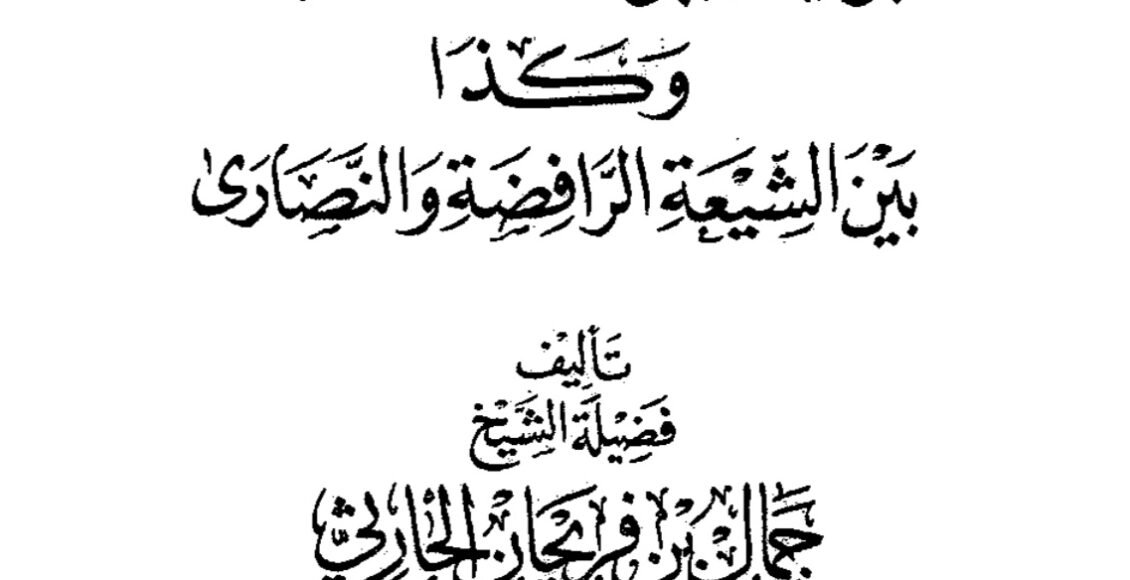 وَكَذَا
بَيْنَ الشِّيْعَةِ الرَّافِضَةِ وَالنَّصَارَىٰ
تَأْلِيْف
فَضِيْلَةِ الشَّيْخ
جَمَال بْن فُرَيْحَان الْحَارِثِيّ